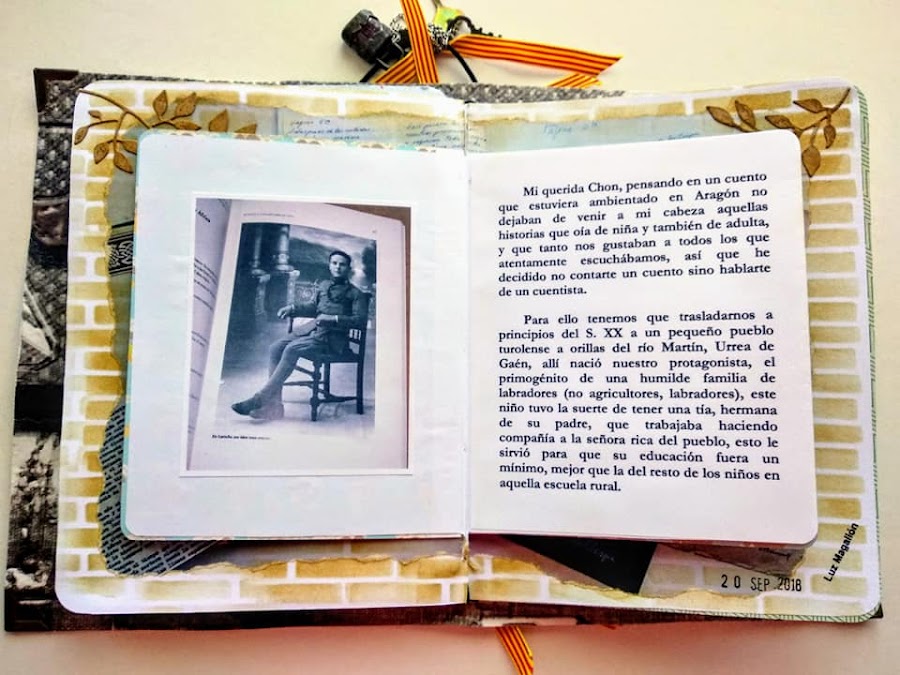 Mi querida Chon, pensando en un cuento
que estuviera ambientado en Aragón no
dejaban de venir a mi cabeza aquellas
historias que oía de niña y también de adulta,
y que tanto nos gustaban a todos los que
atentamente escuchábamos, así que he
decidido no contarte un cuento sino hablarte
de un cuentista.
Para ello tenemos que trasladarnos a
principios del S. XX a un pequeño pueblo
turolense a orillas del río Martín, Urrea de
Gaén, allí nació nuestro protagonista, el
primogénito de una humilde familia de
labradores (no agricultores, labradores), este
niño tuvo la suerte de tener una tía, hermana
de su padre, que trabajaba haciendo
compañía a la señora rica del pueblo, esto le
sirvió para que su educación fuera un
mínimo, mejor que la del resto de los niños en
aquella escuela rural.
Luz Magallón
20 SEP 2018